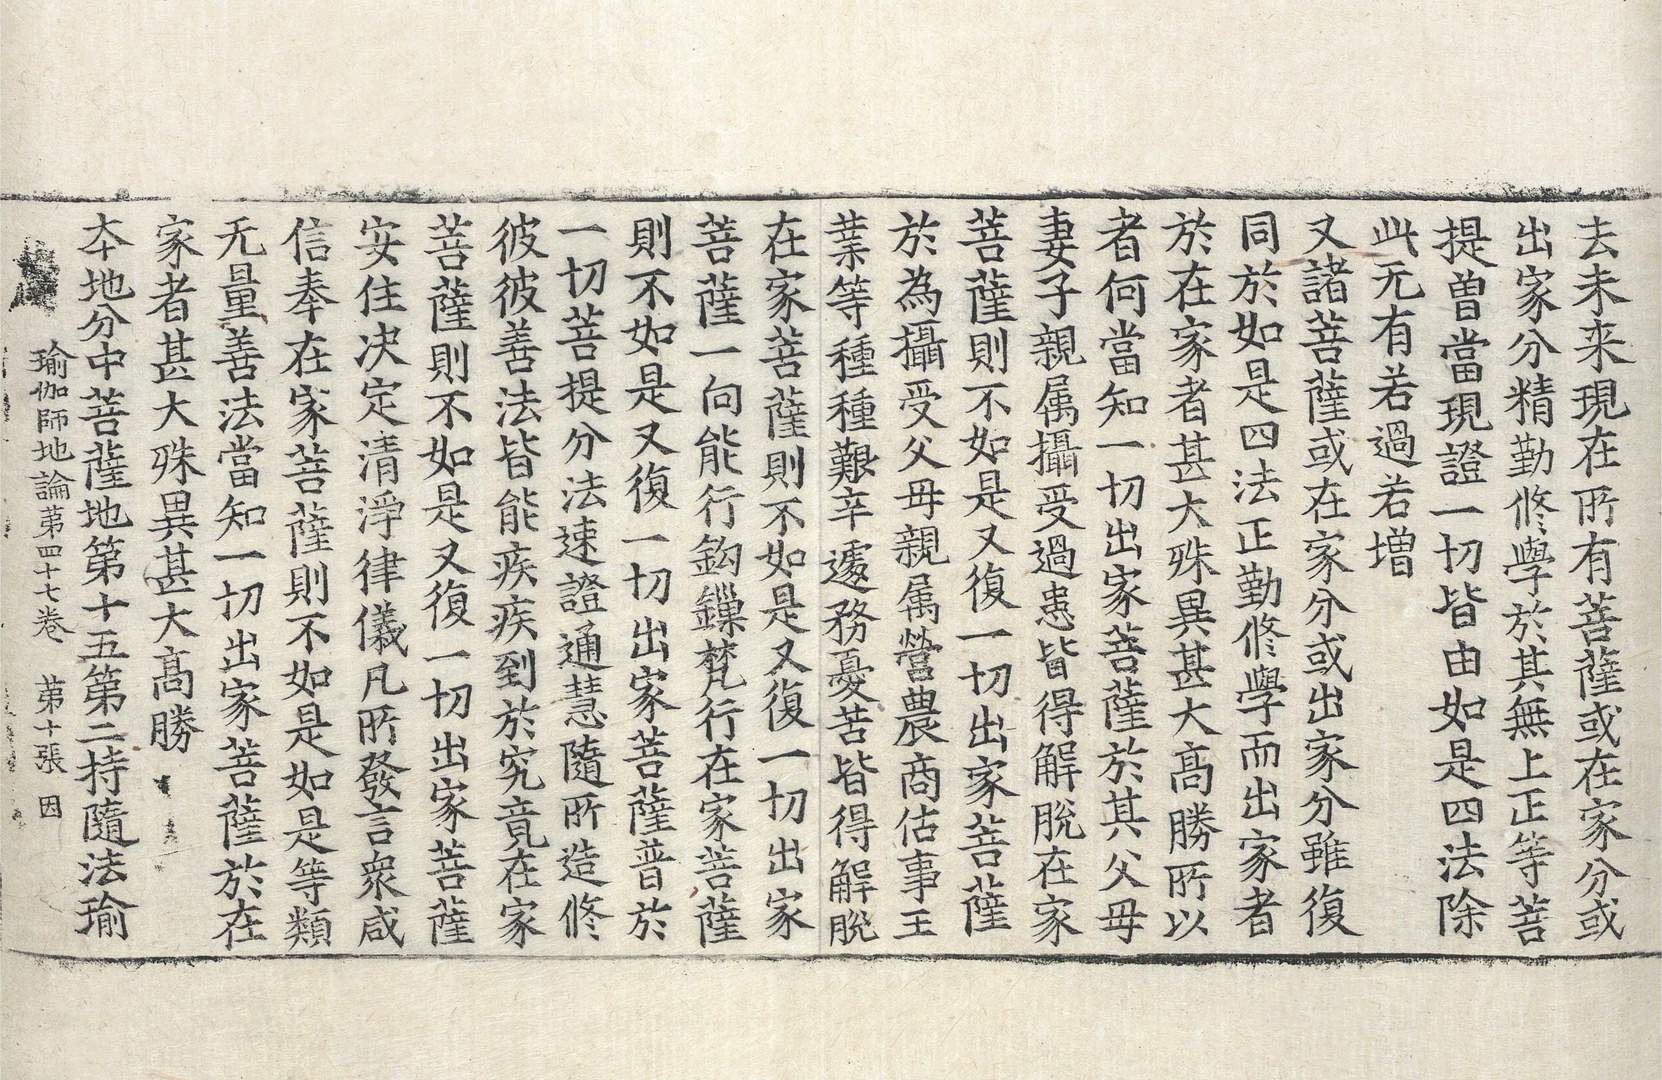 去未来現在所有菩薩或在家分或
出家分精勤修學於其無上正等菩
提曽當現證一切皆由如是四法除
此无有若過若增
又諸菩薩或在家分或出家分雖復
同於如是四法正勤修學而出家者
於在家者甚大殊異甚大髙勝所以
者何當知一切出家菩薩於其父母
妻子親属攝受過患皆得解脫在家
菩薩則不如是又復一切出家菩薩
於為攝受父母親属營農商估事王
業等種種艱辛遽務憂苦皆得解脫
在家菩薩則不如是又復一切出家
菩薩一向能行鈎鏁梵行在家菩薩
則不如是又復一切出家菩薩普於
一切菩提分法速證通慧隨所造修
彼彼善法皆能疾疾到於究竟在家
菩薩則不如是又復一切出家菩薩
安住决定清淨律儀凡所發言衆咸
信奉在家菩薩則不如是如是等類
无量善法當知一切出家菩薩於在
家者甚大殊異甚大髙勝
本地分中菩薩地第十五第二持隨法瑜
瑜伽師地論第四十七卷　第十張　因